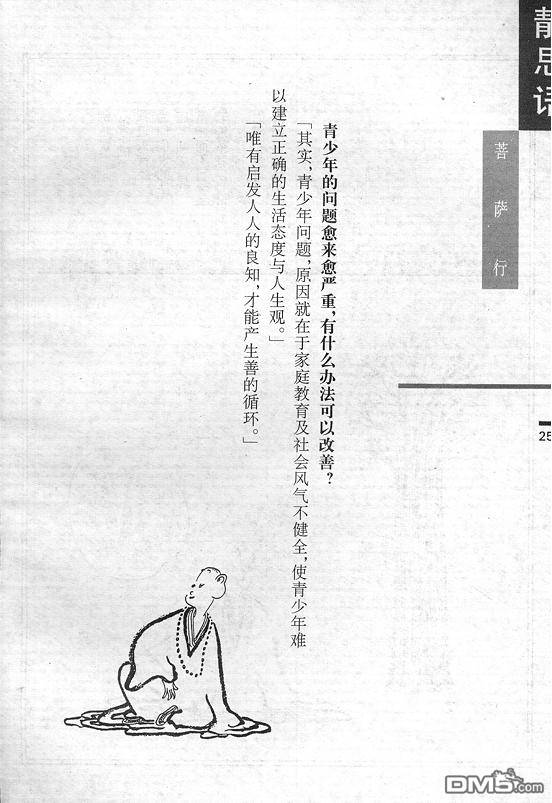 静思语
菩萨行
25
青少年的问题愈来愈严重，有什么办法可以改善？
「其实，青少年问题，原因就在于家庭教育及社会风气不健全，使青少年难
以建立正确的生活态度与人生观。」
「唯有启发人人的良知，才能产生善的循环。」
DM5.com